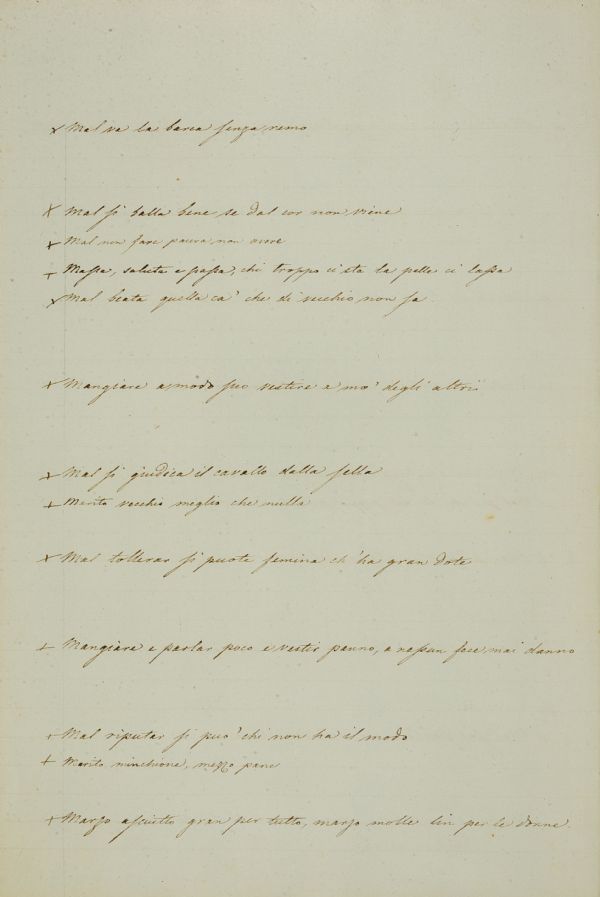 x Mal va la barca senza remo
x Mal si balla bene se dal cor non viene
x Mal non fare paura non avere
+ Massa, saluta e passa, chi troppo ci sta la pelle ci lassa
x Mal beata quella ca' che di vecchio non sa.
x Mangiare a modo suo vestire a mo' degli altri.
x Mal si giudica il cavallo dalla sella
+ Marito vecchio meglio che nulla
x Mal tollerar si puote femina ch'ha gran dote
+ Mangiare e parlar poco e vestir panno, a nessun fece mai danno
+ Mal riputar si puo' chi non ha il modo
+ Marito minchione, mezzo pane
+ Marzo asciutto gran per tutto, marzo molle lin per le donne.